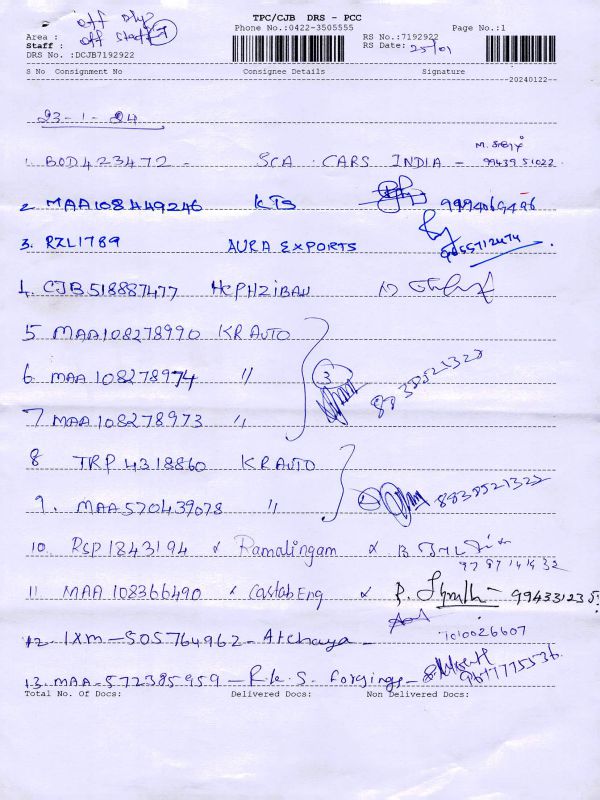 off only
off staff
TPC/CJB DRS - PCC
Phone No.:0422-3505555
Page No.:1
Area :
Staff :
DRS No. :DCJB7192922
RS No.:7192922
RS Date: 25/01
S No Consignment No Consignee Details Signature
20240122
23-1-24
1. BOD423472 - SCA CARS INDIA - M.
99439 51022
2. MAA108449246 KTS 9994069496
3. RZL1789 AURA EXPORTS
4. CJB518887477 HEPHZIBAH
5 MAA108278990 KR AUTO
6 MAA 108278974 "
3
8838521322
7 MAA108278973 "
8 TRP 4318860 KR AUTO
9. MAA520439078 " 8838521322
10. RSP1843194 Ramalingam
9787141432
11. MAA 108366490 Castab Eng 994331235
12. IXM-505764962- Atchaya - 1010026607
13. MAA-572385959 - R.K.S. forgings -
Total No. Of Docs: Delivered Docs: Non Delivered Docs: